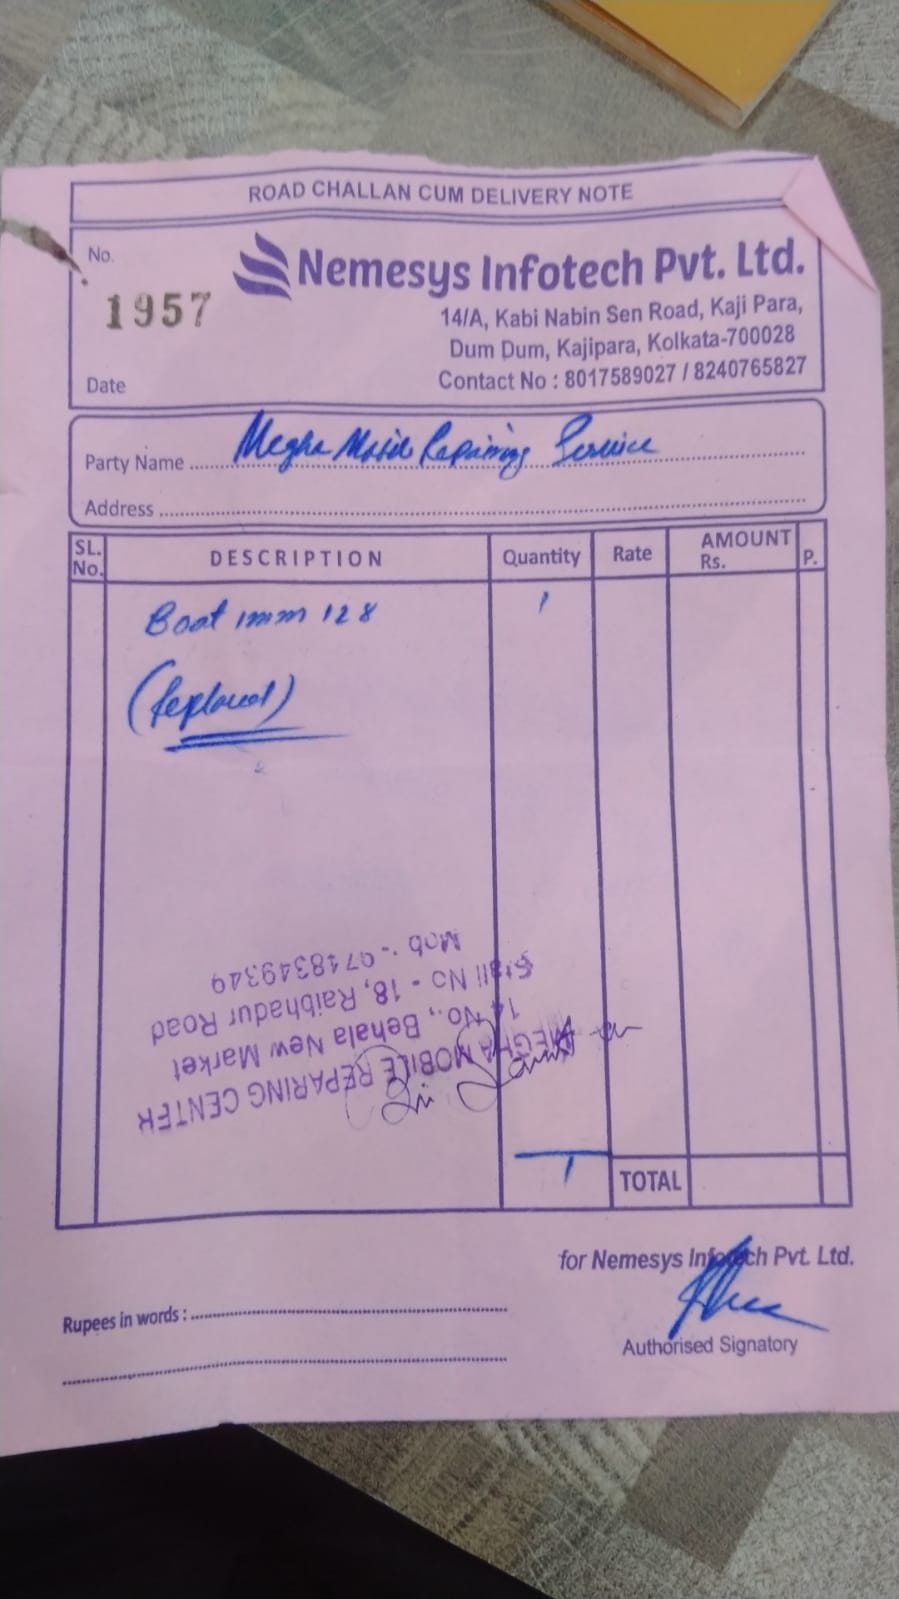 ROAD CHALLAN CUM DELIVERY NOTE
No.
1957
Nemesys Infotech Pvt. Ltd.
14/A, Kabi Nabin Sen Road, Kaji Para,
Dum Dum, Kajipara, Kolkata-700028
Contact No : 8017589027 / 8240765827
Date
Party Name Megha Mobile Repairing Service
Address
SL. No. DESCRIPTION Quantity Rate AMOUNT Rs. P.
Boat 128 1
(Replaced)
MEGHA MOBILE REPARING CENTER
14 No., Behala New Market
Stall No - 18, Raibhadur Road
Mob :- 9748349349
1 TOTAL
for Nemesys Infotech Pvt. Ltd.
Rupees in words :
Authorised Signatory